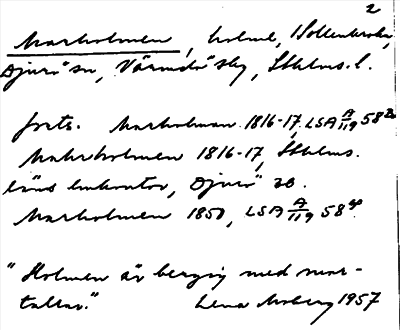 2
Marholmen, holme, Hollenkroka,
Djurö sn, Värmdö sky, Sthlms. l.
forts. Marholman 1816-17, LSA A/119 58
Mahrholmen 1816-17, Sthlms.
läns lmkontor, Djurö 20.
Marholmen 1850, LSA A/119 58
"Holmen är bergig med mar-
tallar." Lena Moberg 1957